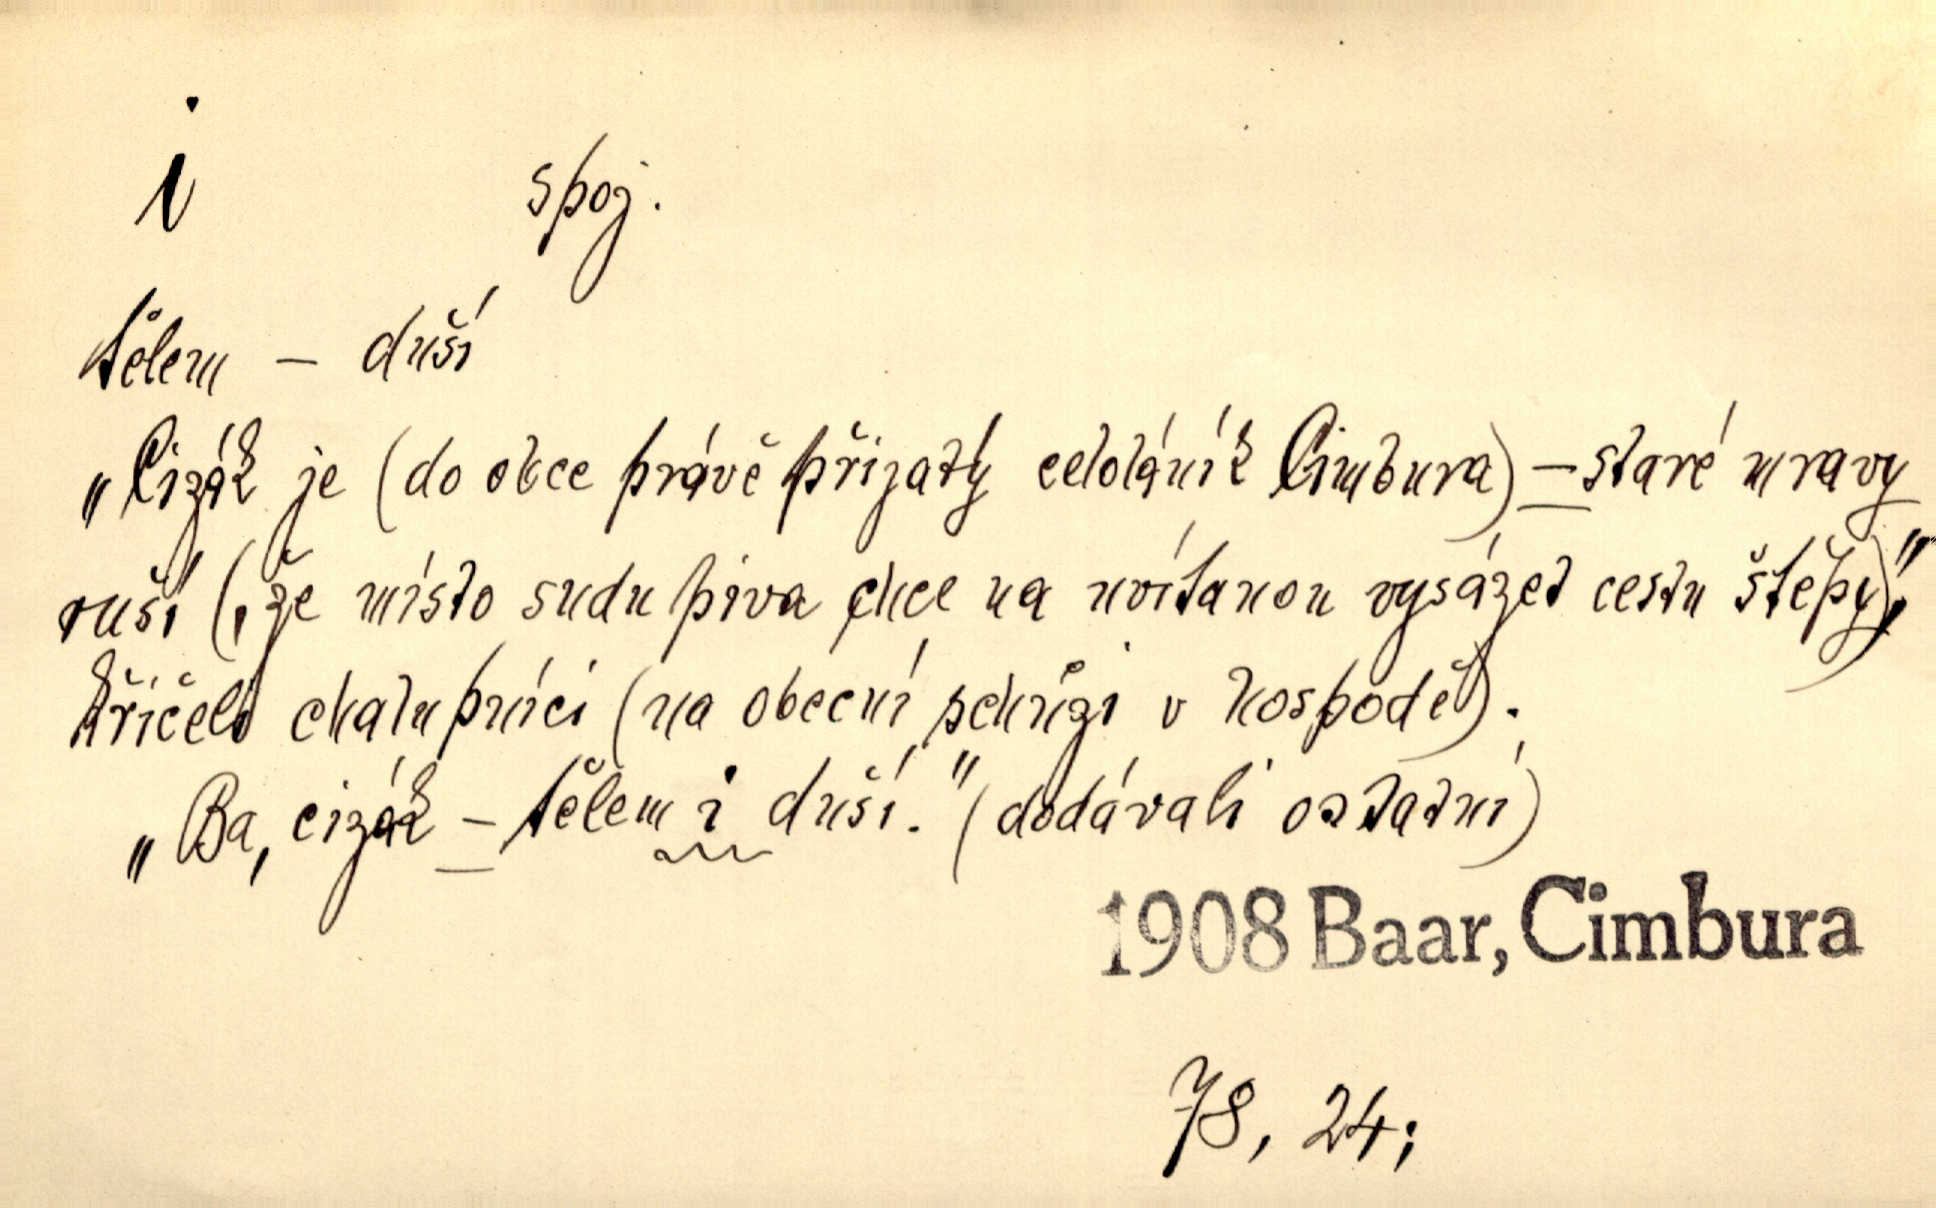 i spoj.
tělem – duší
„Cizák je (do obce právě přijatý celoláník Cimbura) – staré mravy
ruší (, že místo sudu piva chce na uvítanou vysázet cestu štěpy),"
křičeli chalupníci (na obecní schůzi v hospodě).
„Ba, cizák – tělem i duší." (dodávali ostatní)
1908 Baar, Cimbura
78, 24;